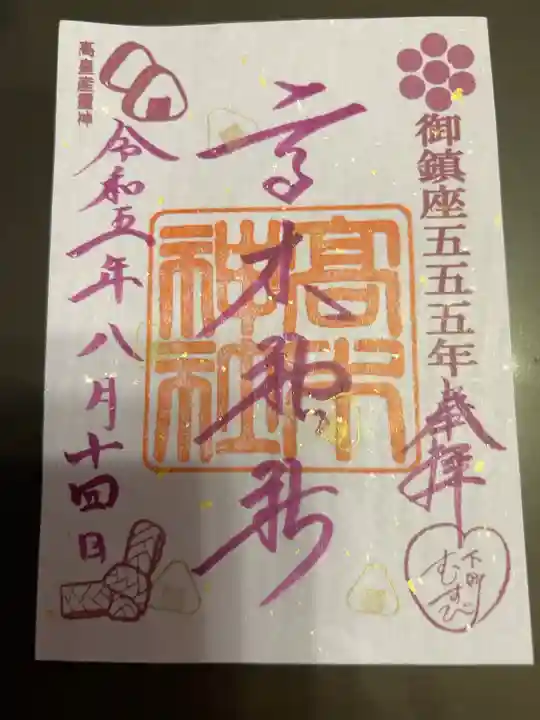 御鎮座五五五年
奉拝
下町
むすび
高木神社
髙木
神社
高皇産霊神
令和五年八月十四日